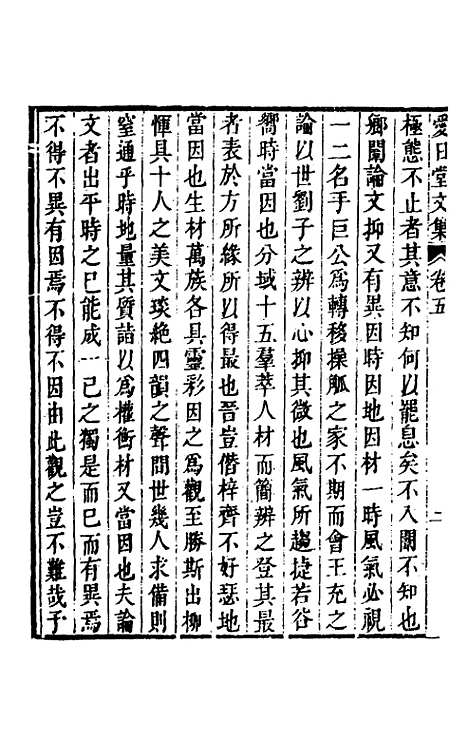 愛日堂文集 卷五 二
極態不止者其意不知何以罷息矣不入闈不知也
鄉闈論文抑又有異因時因地因材一時風氣必視
一二名手巨公爲轉移操觚之家不期而會王充之
論以世劉子之辨以心抑其微也風氣所趨捷若谷
嚮時當因也分域十五羣萃人材而簡辨之登其最
者表於方所緣所以得最也晉豈僭梓齊不好瑟地
當因也生材萬族各具靈彩因之爲觀至勝斯出柳
惲具十人之美文琰絶四韻之聲間世幾人求備則
窒通乎時地量其質詣以爲權衡材又當因也夫論
文者出平時之已能成一己之獨是而已而有異焉
不得不異有因焉不得不因由此觀之豈不難哉予